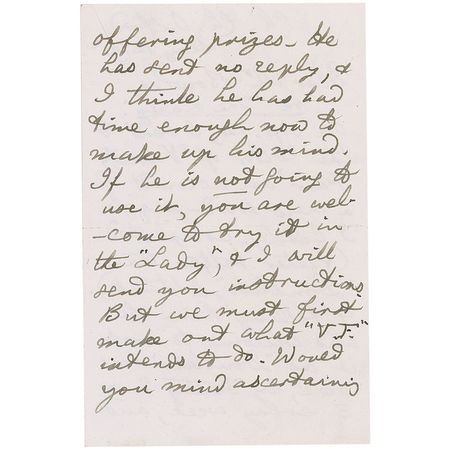 offering prizes – He
has sent no reply, &
I think he has had
time enough now to
make up his mind.
If he is not going to
use it, you are wel-
-come to try it in
the "Lady", & I will
send you instructions
But we must first
make out what "V.F."
intends to do. Would
you mind ascertaining